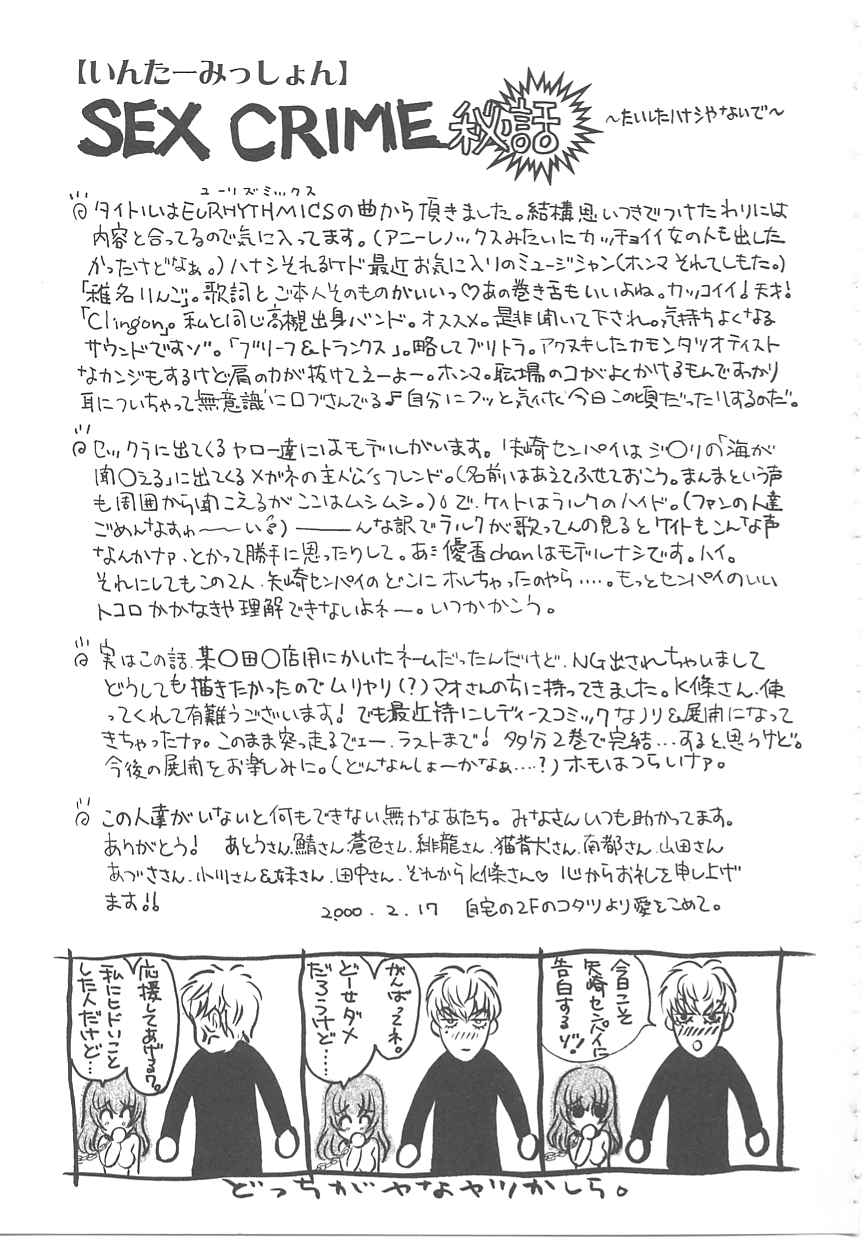 【いんたーみっしょん】
SEX CRIME 秘話 〜たいしたハナシやないで〜
ユーリズミックス
タイトルはEURHYTHMICSの曲から頂きました。結構思いつきでつけたわりには
内容と合ってるので気に入ってます。(アニーレノックスみたいにカッチョイイ女の人も出した
かったけどなぁ。)ハナシそれるケド最近お気に入りのミュージシャン(ホンマそれてしもた。)
「椎名りんご」。歌詞とご本人そのものがいいっ♡あの巻き舌もいいよね。カッコイイ!天才!
「Clingon」。私と同じ高槻出身バンド。オススメ。是非聞いて下され。気持ちよくなる
サウンドですゾ。「ブリーフ&トランクス」。略してブリトラ。アクヌキしたカモンタツオテイスト
なカンジもするけど肩の力が抜けてえーよー。ホンマ。職場のコがよくかけるもんですっかり
耳についちゃって無意識に口ずさんでる♪自分にフッと気付く今日この頃だったりするのだ。
セックラに出てくるヤロー達にはモデルがいます。矢崎センパイはジ○リの「海が
聞○える」に出てくるメガネの主人公'sフレンド。(名前はあえてふせておこう。まんまという声
も周囲から聞こえるがここはムシムシ。)で、ケイトはラルクのハイド。(ファンの人達
ごめんなぁ〜い)――んな訳でラルクが歌ってんの見るとケイトもこんな声
なんかナァ、とかって勝手に思ったりして。あ、優香chanはモデルナシです。ハイ。
それにしてもこの2人、矢崎センパイのどこにホレちゃったのやら……。もっとセンパイのいい
トコロかかなきゃ理解できないよネー。いつかかこう。
実はこの話、某○田○店用にかいたネームだったんだけど、NG出されちゃいまして
どうしても描きたかったのでムリヤリ(?)マオさんのちに持ってきました。K條さん、使
ってくれて有難うございます!でも最近特にレディースコミックなノリ&展開になって
きちゃったナァ。このまま突っ走るでェー、ラストまで!多分2巻で完結…すると思うけど。
今後の展開をお楽しみに。(どんなんしょーかなぁ…?)ホモはつらいけァ。
この人達がいないと何もできない無力なあたち。みなさんいつも助かってます。
ありがとう! あとうさん、鯖さん、蒼色さん、緋龍さん、猫背犬さん、南都さん、山田さん
あづささん、小川さん&妹さん、田中さん、それからK條さん♡ 心からお礼を申し上げ
ます!!
2000.2.17 自宅の2Fのコタツより愛をこめて。
今日こそ
矢崎センパイに
告白するゾ!
がんばってネ。
どーせダメ
だろうけど…
応援してあげるワ。
私にヒドいこと
した人だけど…
どっちがヤなヤツかしら。